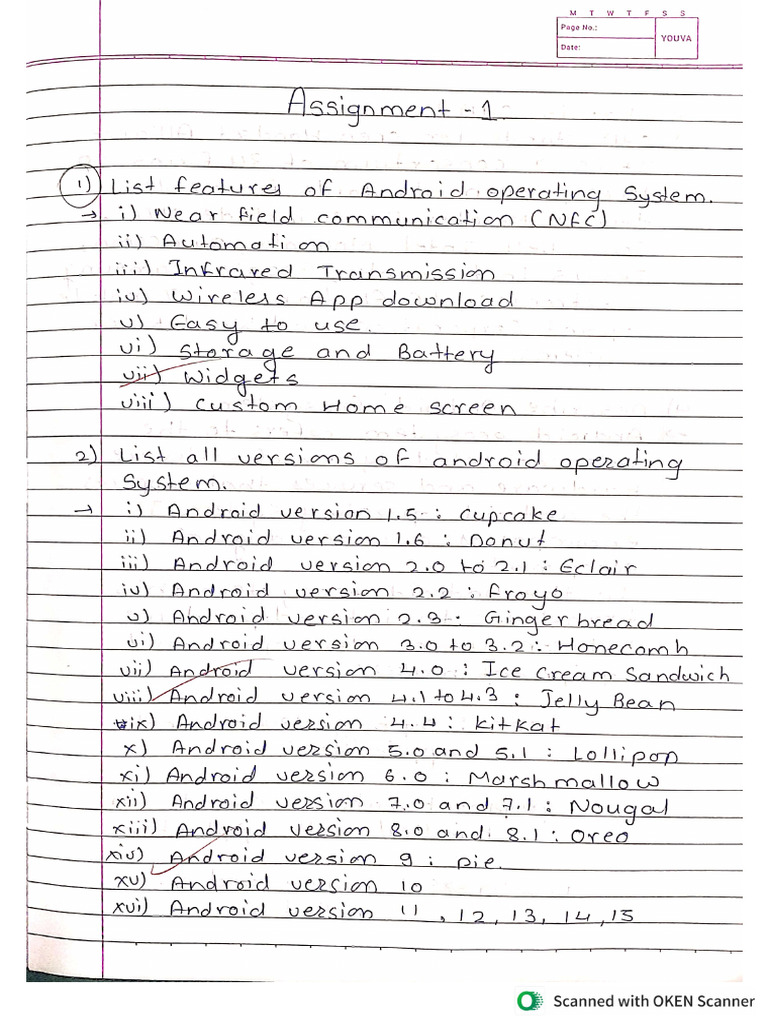 M T W T F S S
Page No.:
YOUVA
Date:
Assignment - 1
1) List features of Android operating System.
→ i) Near field communication (NFC)
ii) Automation
iii) Infrared Transmission
iv) Wireless App download
v) Easy to use.
vi) Storage and Battery
vii) Widgets
viii) Custom Home screen
2) List all versions of android operating
System.
→ i) Android version 1.5 : Cupcake
ii) Android version 1.6 : Donut
iii) Android version 2.0 to 2.1 : Eclair
iv) Android version 2.2 : Froyo
v) Android version 2.3 : Ginger bread
vi) Android version 3.0 to 3.2 : Honecomh
vii) Android version 4.0 : Ice cream Sandwich
viii) Android version 4.1 to 4.3 : Jelly Bean
ix) Android version 4.4 : KitKat
x) Android version 5.0 and 5.1 : Lollipop
xi) Android version 6.0 : Marshmallow
xii) Android version 7.0 and 7.1 : Nougal
xiii) Android version 8.0 and 8.1 : Oreo
xiv) Android version 9 : pie.
xv) Android version 10
xvi) Android version 11, 12, 13, 14, 15
Scanned with OKEN Scanner